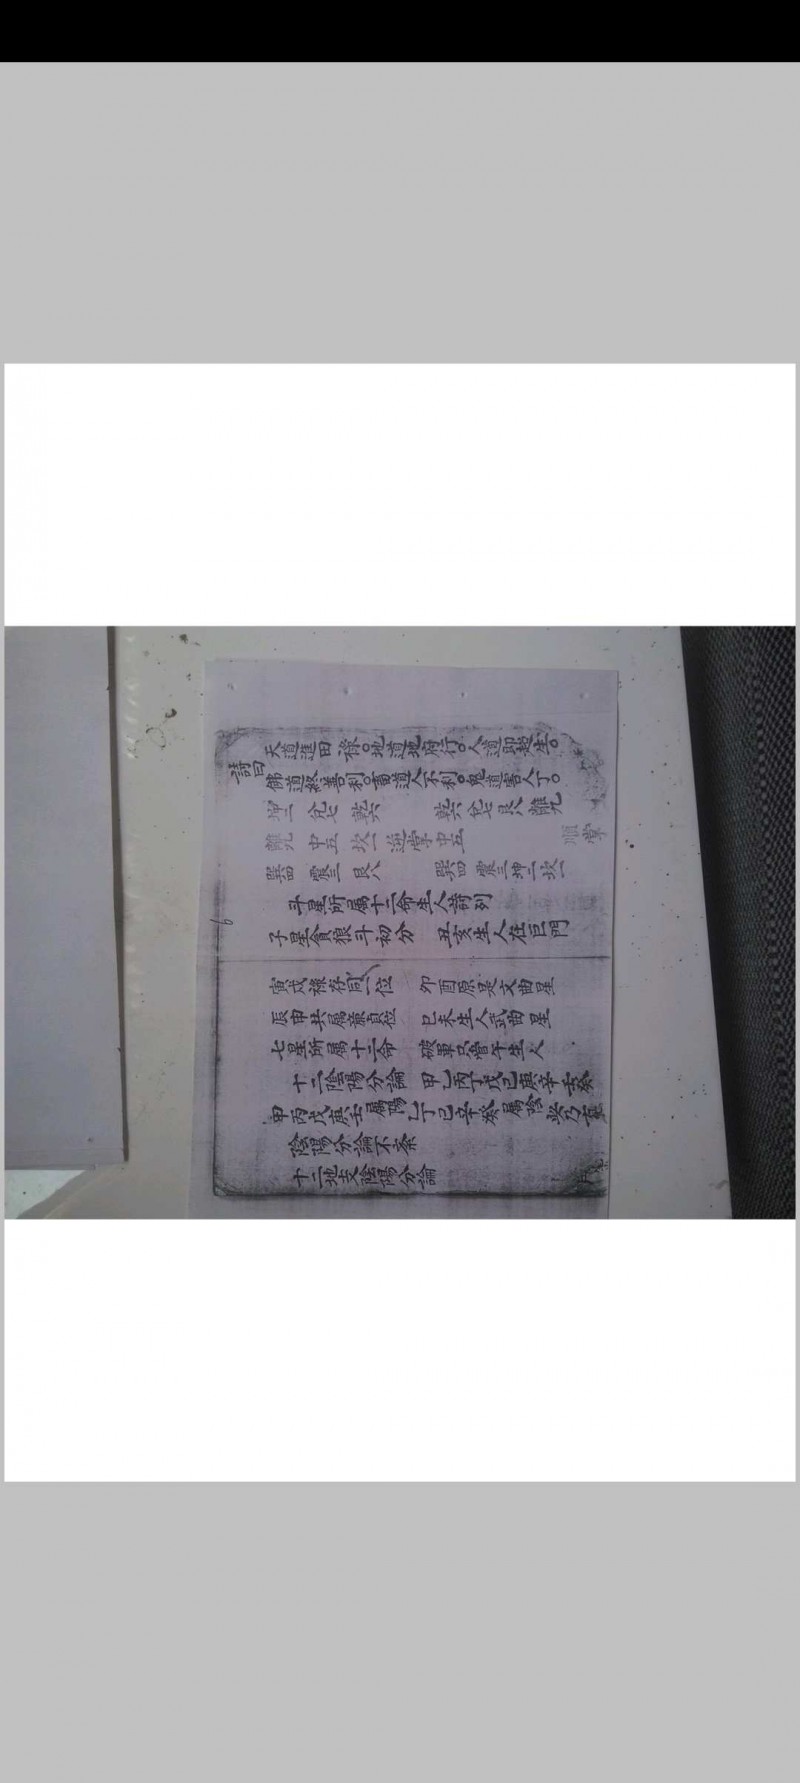 天道進田祿。地道地府行。人道即超生。
詩曰
佛道終善利。畜道人不利。鬼道害人丁。
坤二 兌七 乾六 乾六 兌七 艮八 離九
離九 中五 坎一 逆掌 中五 順掌
巽四 震三 艮八 巽四 震三 坤二 坎一
斗星所属十二命生人詩列
子星貪狼斗初分 丑亥生人在巨門
寅戌祿存同一位 卯酉原是文曲星
辰申共属廉貞位 巳未生人武曲星
七星所属十二命 破軍只管午生人
十二陰陽分論 甲乙丙丁戊己庚辛壬癸
甲丙戊庚壬属陽乙丁己辛癸属陰
陰陽分論不紊
十二地支陰陽分論